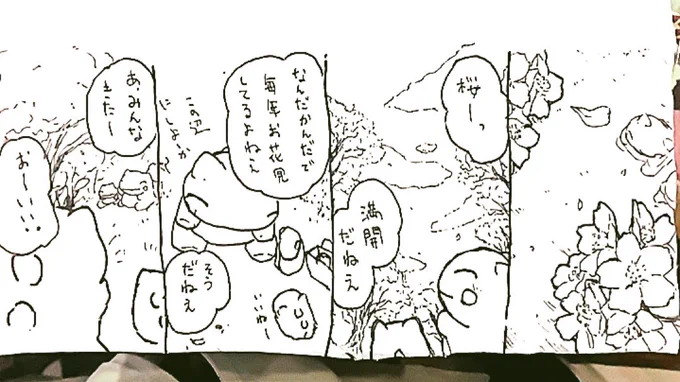 桜ーっ
満開
だねえ
なんだかんだで
毎年お花見
してるよねえ
この辺
にしよーか
そう
だねえ
いいねー
あ、みんな
きたー
おーいい。